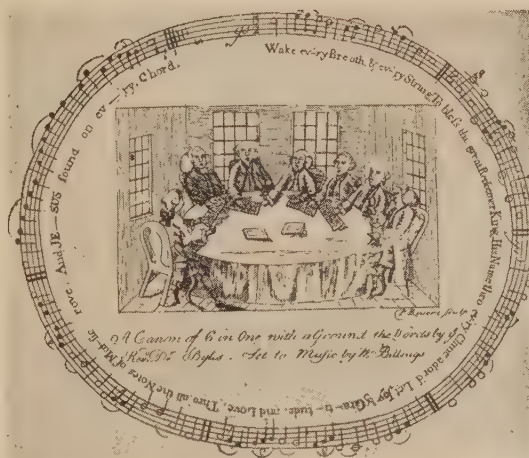 Wake ev'ry Breath, & ev'ry String To bless the great Redeemer King, His Name thro' ev'ry Clime ador'd Let Joy & Gra-ti-tude, and Love, Thro' all the Notes of Music rove, And JE-SUS sound on ev-'ry Chord.
P Revere sculp
A Canon of 6 in One with a Ground the Words by y.e
Rev.d D.r Byles. Set to Music by W. Billings